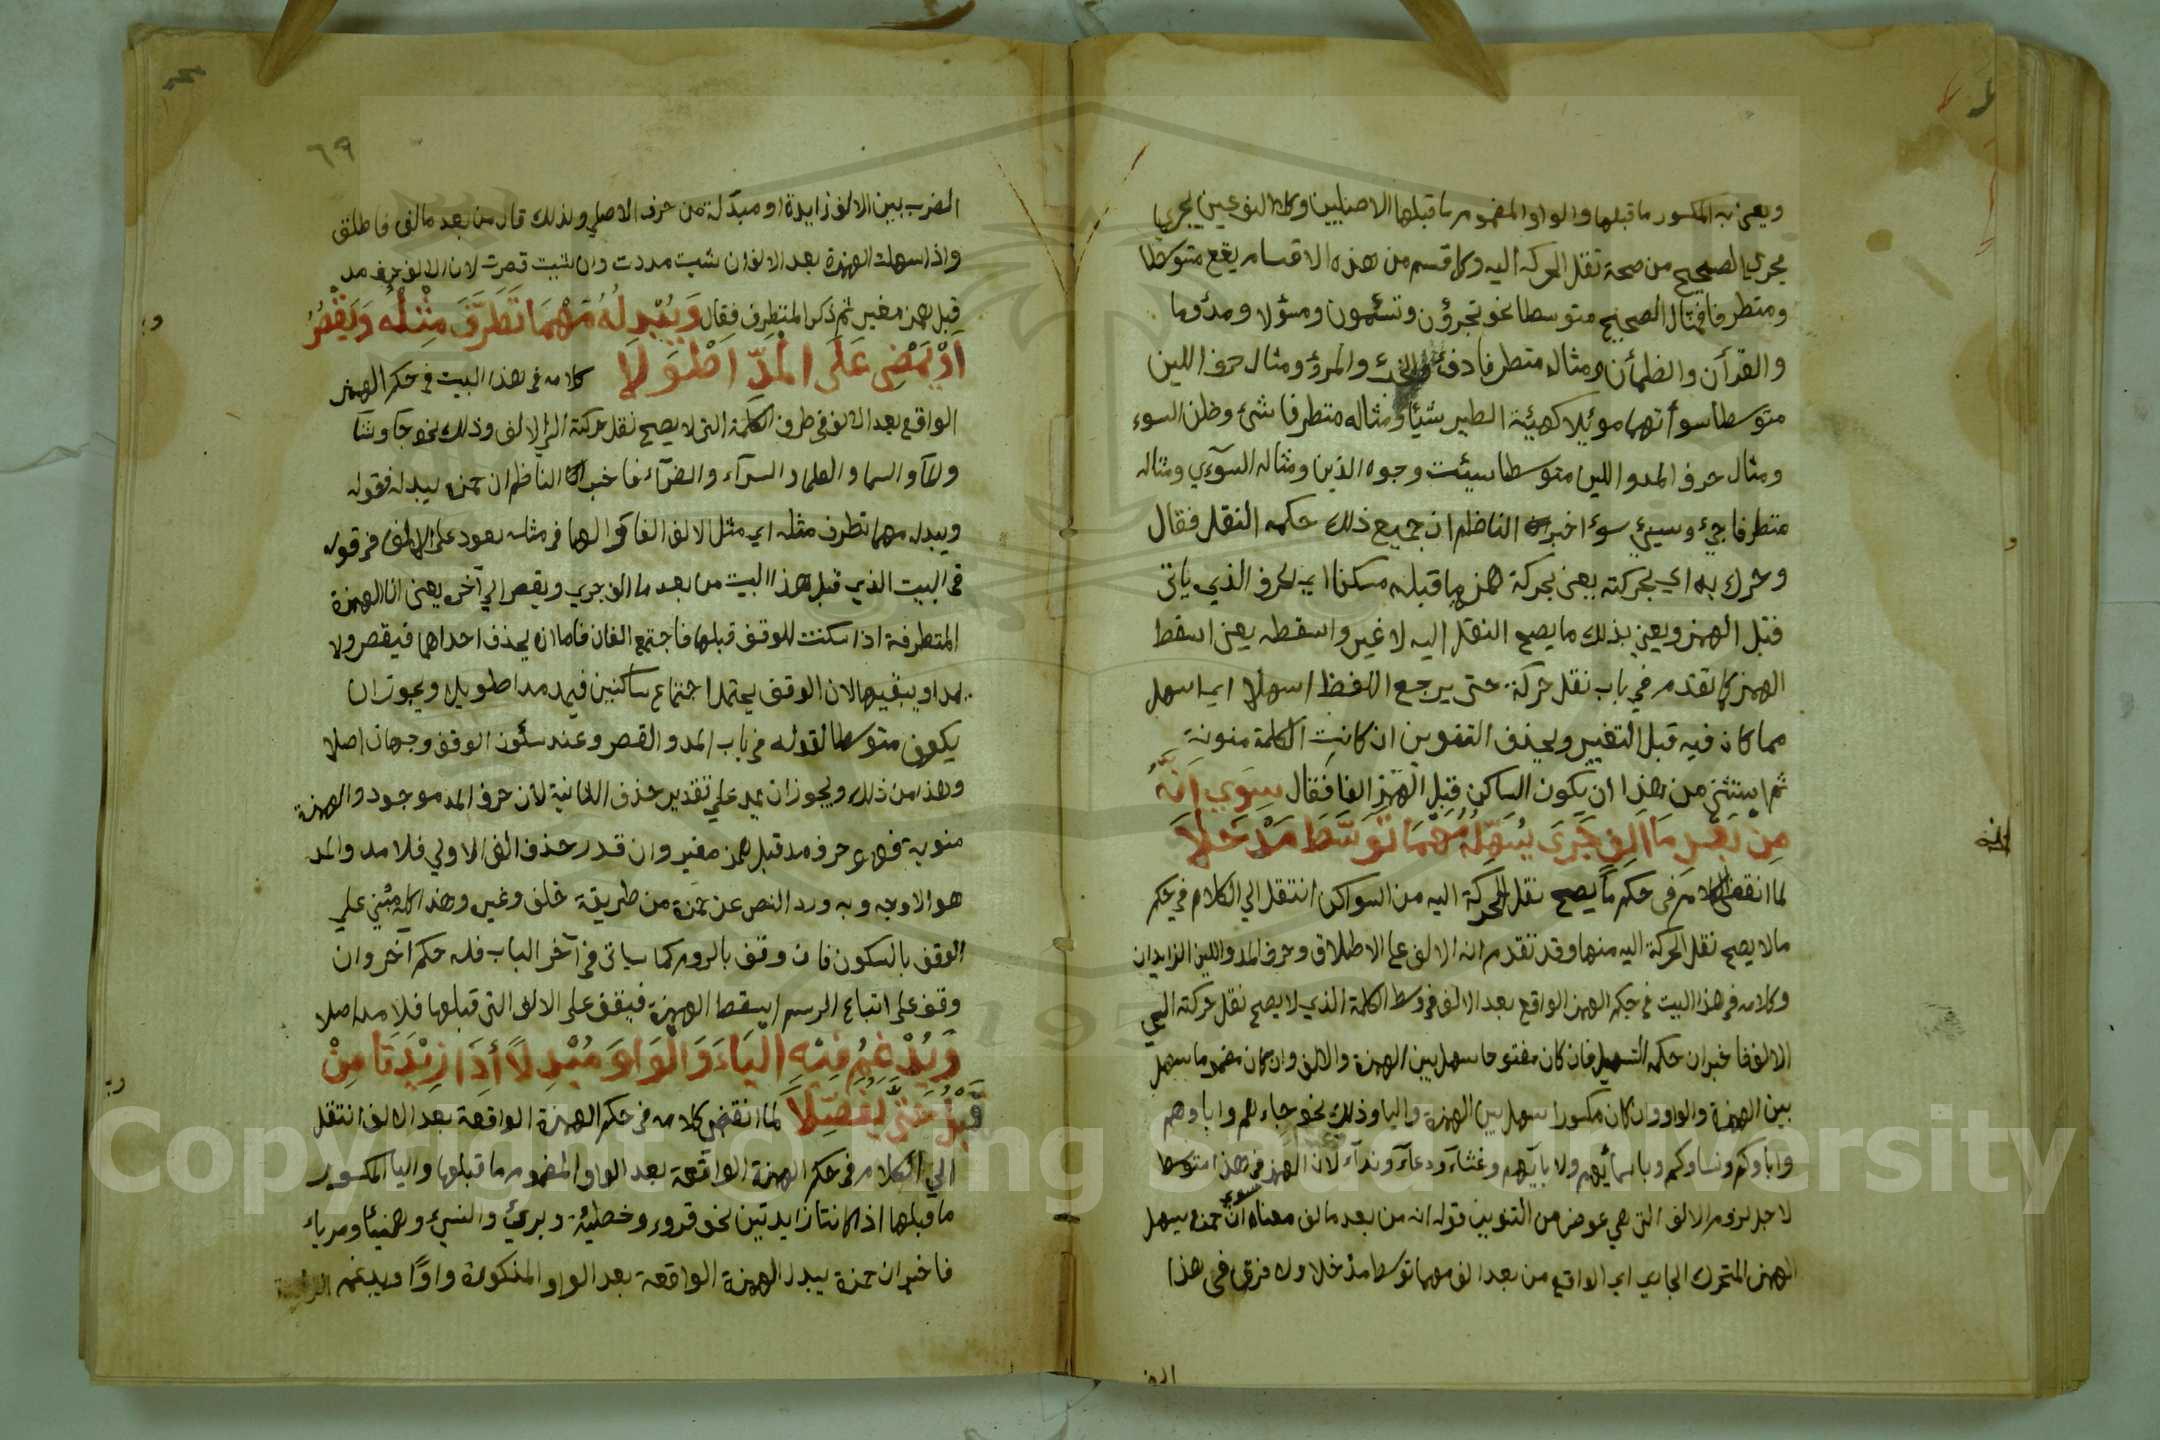 ويعني به المكسور ما قبلها والواو المضموم ما قبلها الاصليين وكلا النوعين يجري
مجري الصحيح من صحة نقل الحركة اليه وكل قسم من هذه الاقسام يقع متوسطا
ومتطرفا فمثال الصحيح متوسطا نحو تجرؤن وتسئمون ومسؤلا ومذؤما
والقرآن والظمأن ومثاله متطرفا دفئ والخبء والمرؤ ومثال حرف اللين
متوسطا سوأتهما موئلا كهيئة الطير شيئا ومثاله متطرفا شئ وظن السوء
ومثال حرف المد واللين متوسطا سيئت وجوه الذين ومثاله السوآي ومثاله
متطرفا جئ وسيئ سوء اخبر الناظم ان جميع ذلك حكمه النقل فقال
وحرك به اي بحركته يعني بحركة همز ما قبله مسكنا اي الحرف الذي ياتي
قبل الهمز ويعني بذلك ما يصح النقل اليه لا غير واسقطه يعني اسقط
الهمز كما تقدم في باب نقل حركة حتى يرجع اللفظ اسهلا اي اسهل
مما كان فيه قبل التغيير ويحذف التنوين ان كانت الكلمة منونة
ثم استثنى من هذا ان يكون الساكن قبل الهمز الفا فقال سِوَي اَنَّهُ
مِنْ بَعْدِ مَا اَلِفٍ جَرَى يُسَهِّلُهُ مَهْمَا تَوَسَّطَ مَدْخَلَا
لما انقضى الكلام في حكم ما يصح نقل الحركة اليه من السواكن انتقل الي الكلام في حكم
مالا يصح نقل الحركة اليه منها وقد تقدم انه الالف على الاطلاق وحرف المد واللين الزايدان
وكلامه في هذا البيت في حكم الهمز الواقع بعد الالف في وسط الكلمة الذي لا يصح نقل حركته الي
الالف فاخبر ان حكمه التسهيل فان كان مفتوحا سهل بين الهمزة والالف وان كان مضموما سهل
بين الهمزة والواو وان كان مكسورا سهل بين الهمزة واليا وذلك نحو جاءهم واباوهم
واباوكم ونساوكم وباسمائهم ولا بآئهم وغثاء ودعآء وندآء لان الهمز في هذا متوسط
لاجل لزوم الالف التي هي عوض من التنوين قوله انه من بعد ما الف معناه سوي ان حمزة يسهل
الهمز المتحرك الجاري اي الواقع من بعد الف مهما توسط مدخلا ولا فرق في هذا
الف
٦٩
الضرب بين الالف زايدة او مبدلة من حرف الاصلي ولذلك قال من بعد ما الف فاطلق
واذا سهلت الهمزة بعد الالف ان شيت مددت وان شيت قصرت لان الالف حرف مد
قبل همز مغير ثم ذكر المتطرف فقال وَيُبْدِلُهُ مَهْمَا تَطَرَّفَ مِثْلُهُ وَيَقْصُرُ
اَوْ يَمْضِي عَلَى الْمَدِّ اَطْوَلَا كلامه في هذا البيت في حكم الهمز
الواقع بعد الالف في طرف الكلمة التي لا يصح نقل حركته الي الالف وذلك نحو جآ وشآ
والسما والسرآء والضرآء فاخبر الناظم ان حمزة يبدله فقوله
ويبدله مهما تطرف مثله اي مثل الالف الفا والها في مثله يعود على الالف في قوله
في البيت الذي قبل هذا البيت من بعد ما الف جري ويقصر الي آخره يعني ان الهمزة
المتطرفة اذا سكنت للوقف قبلها فاجتمع الفان فاما ان يحذف احداهما فيقصر ولا
يمد او يبقيهما لان الوقف يحتمل اجتماع ساكنين فيمد مدا طويلا ويجوز ان
يكون متوسطا لقوله في باب المد والقصر وعند سكون الوقف وجهان اصلا
وهذا من ذلك ويجوز ان يمد على تقدير حذف الثانية لان حرف المد موجود والهمزة
منوية فهو حرف مد قبل همز مغير وان قدر حذف الف الاولي فلا مد والمد
هو الاوجه وبه ورد النص عن حمزة من طريقة خلف وغيره وهذا كله مبني علي
الوقف بالسكون فان وقف بالروم كما سياتي في آخر الباب فله حكم آخر وان
وقف على اتباع الرسم اسقط الهمزة فيقف على الالف التي قبلها فلا مد اصلا
وَيُدْغِمُ فِيْهِ اليَاءَ وَالْوَاوَ مُبْدِلاً أِذَا زِيْدَتَا مِنْ
قَبْلُ حَتَّى يُفَصِّلَا لما انقضى كلامه في حكم الهمزة الواقعة بعد الالف انتقل
الي الكلام في حكم الهمزة الواقعة بعد الواو المضموم ما قبلها واليا المكسور
ما قبلها اذا كانتا زايدتين نحو قروء وخطيئة وبرئ والنسيئ وهنيئا ومريئا
فاخبر ان حمزة يبدل الهمزة الواقعة بعد الواو المذكورة واوًا ويدغم